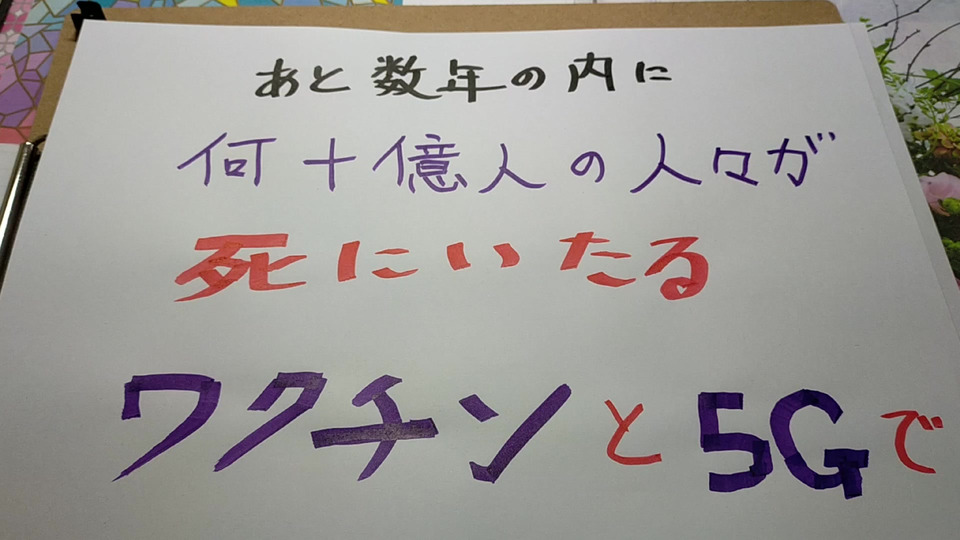 あと数年の内に
何十億人の人々が
死にいたる
ワクチンと5Gで